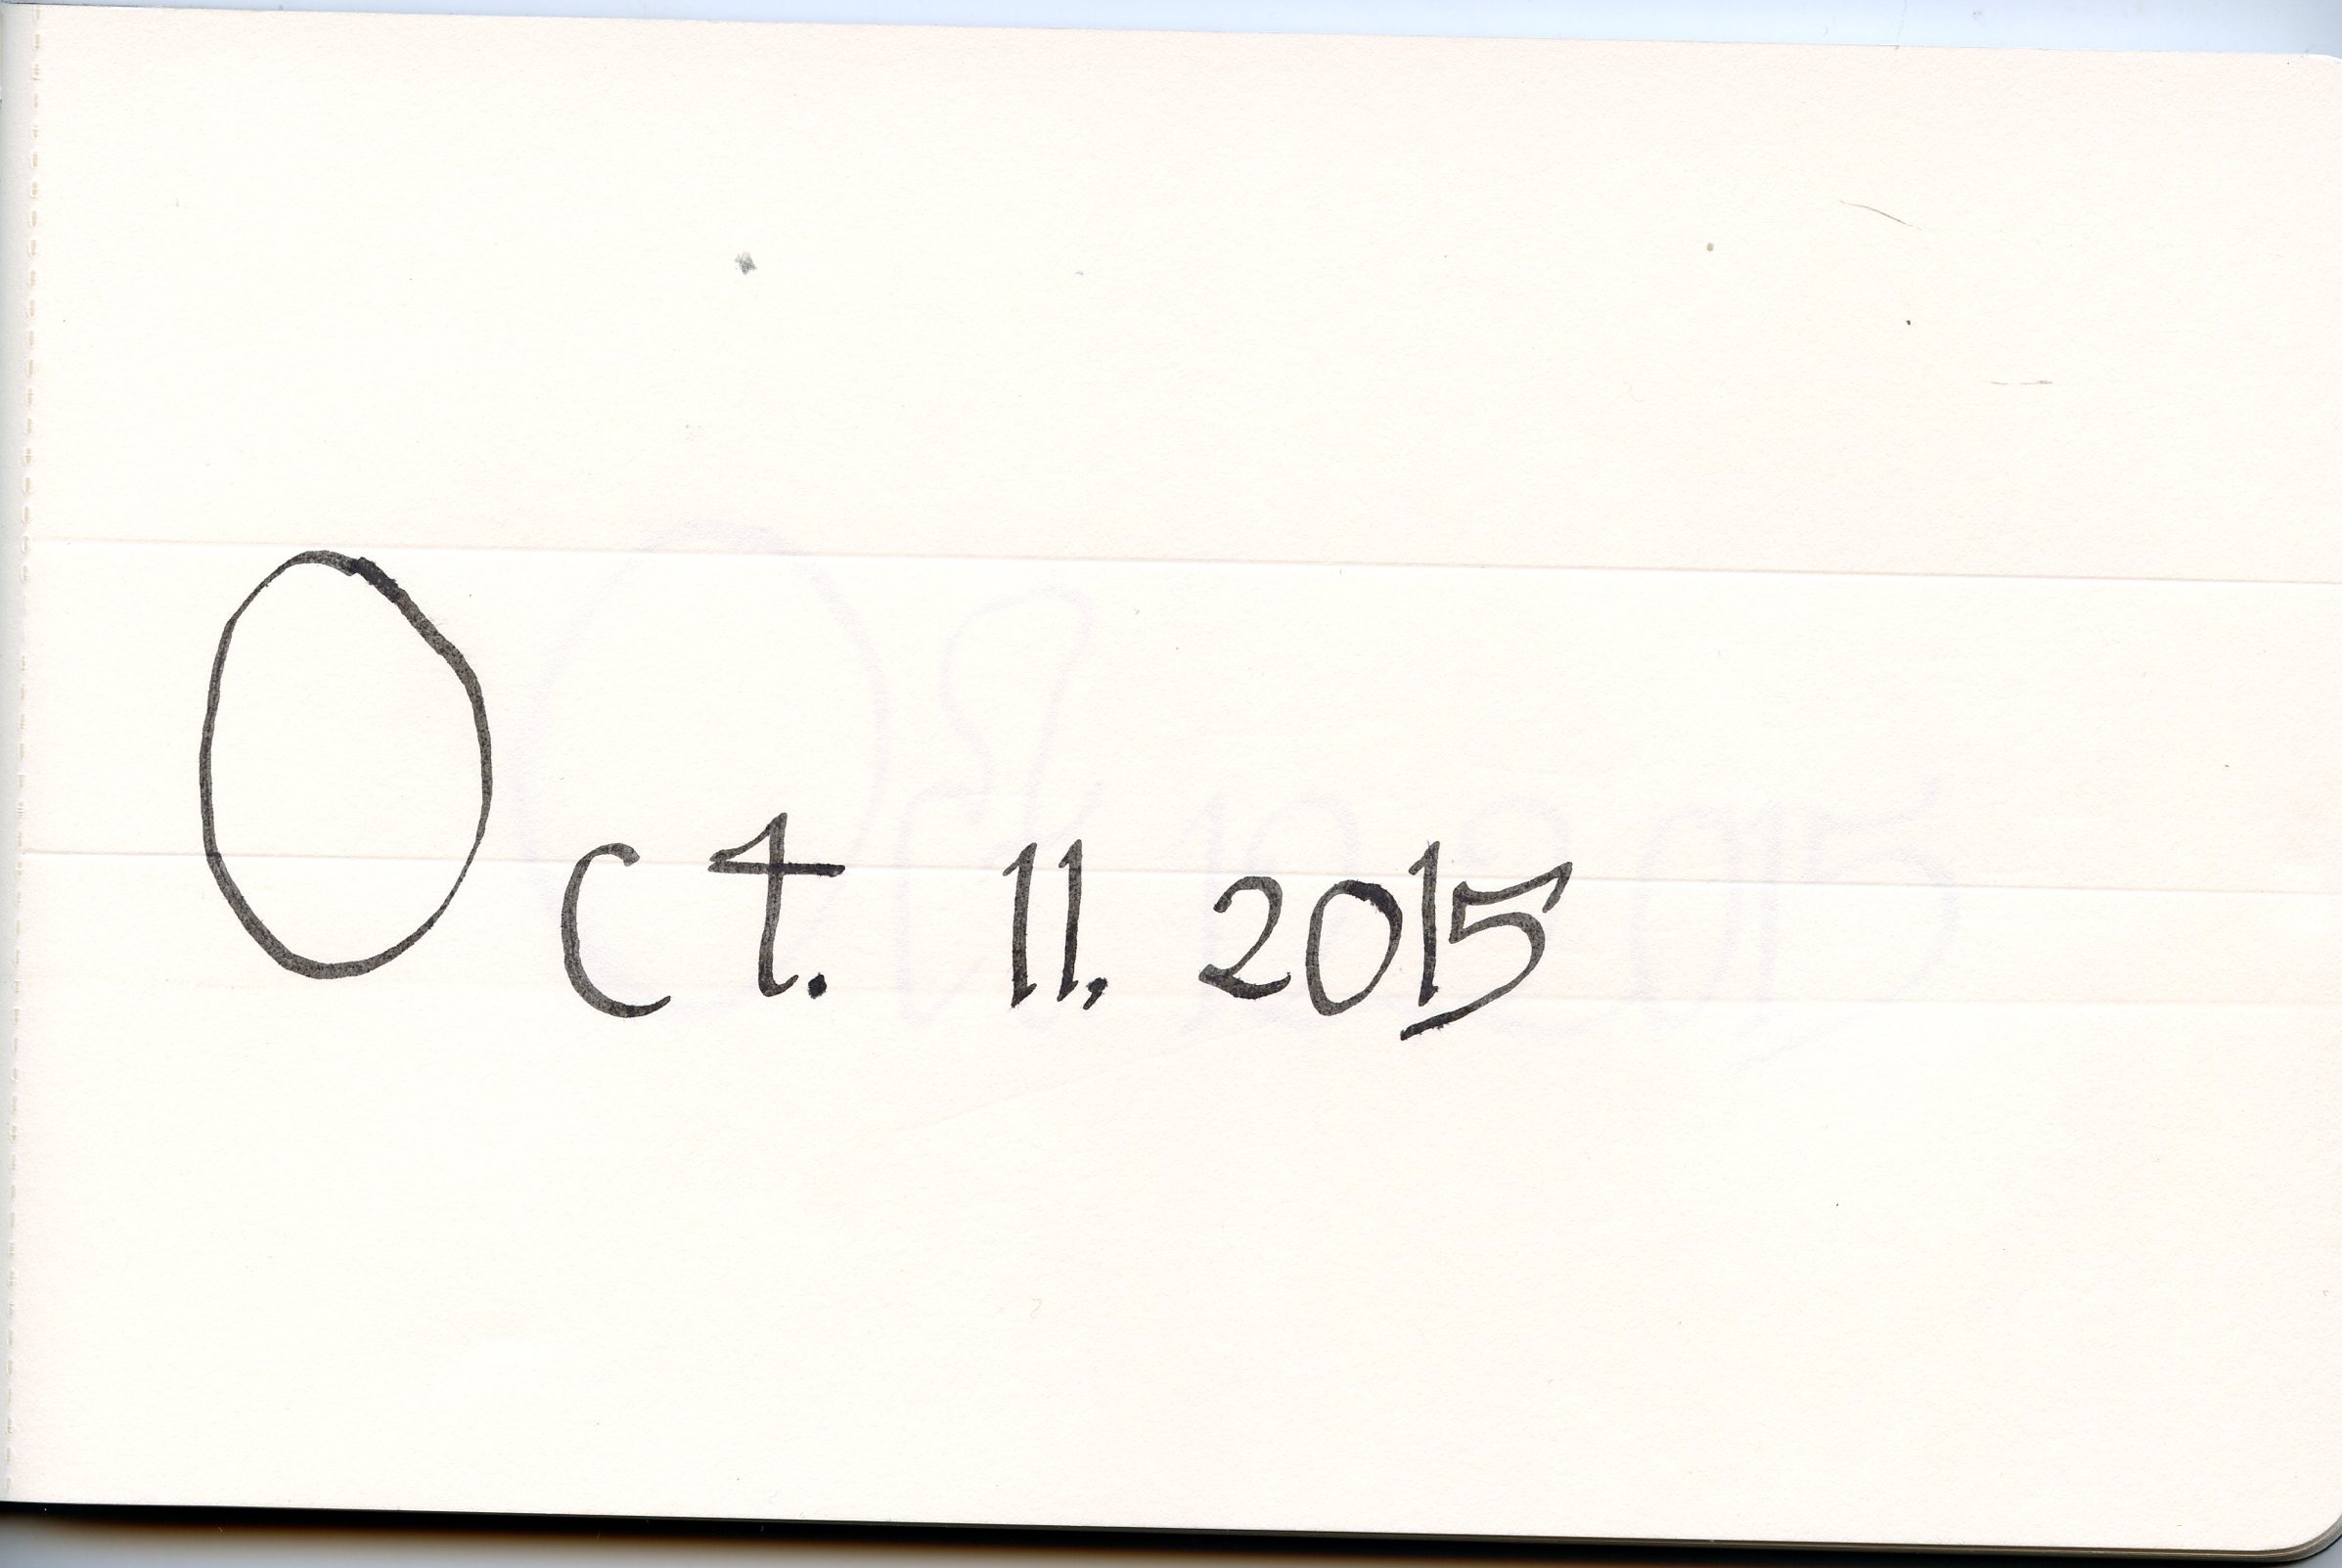 Oct. 11, 2015